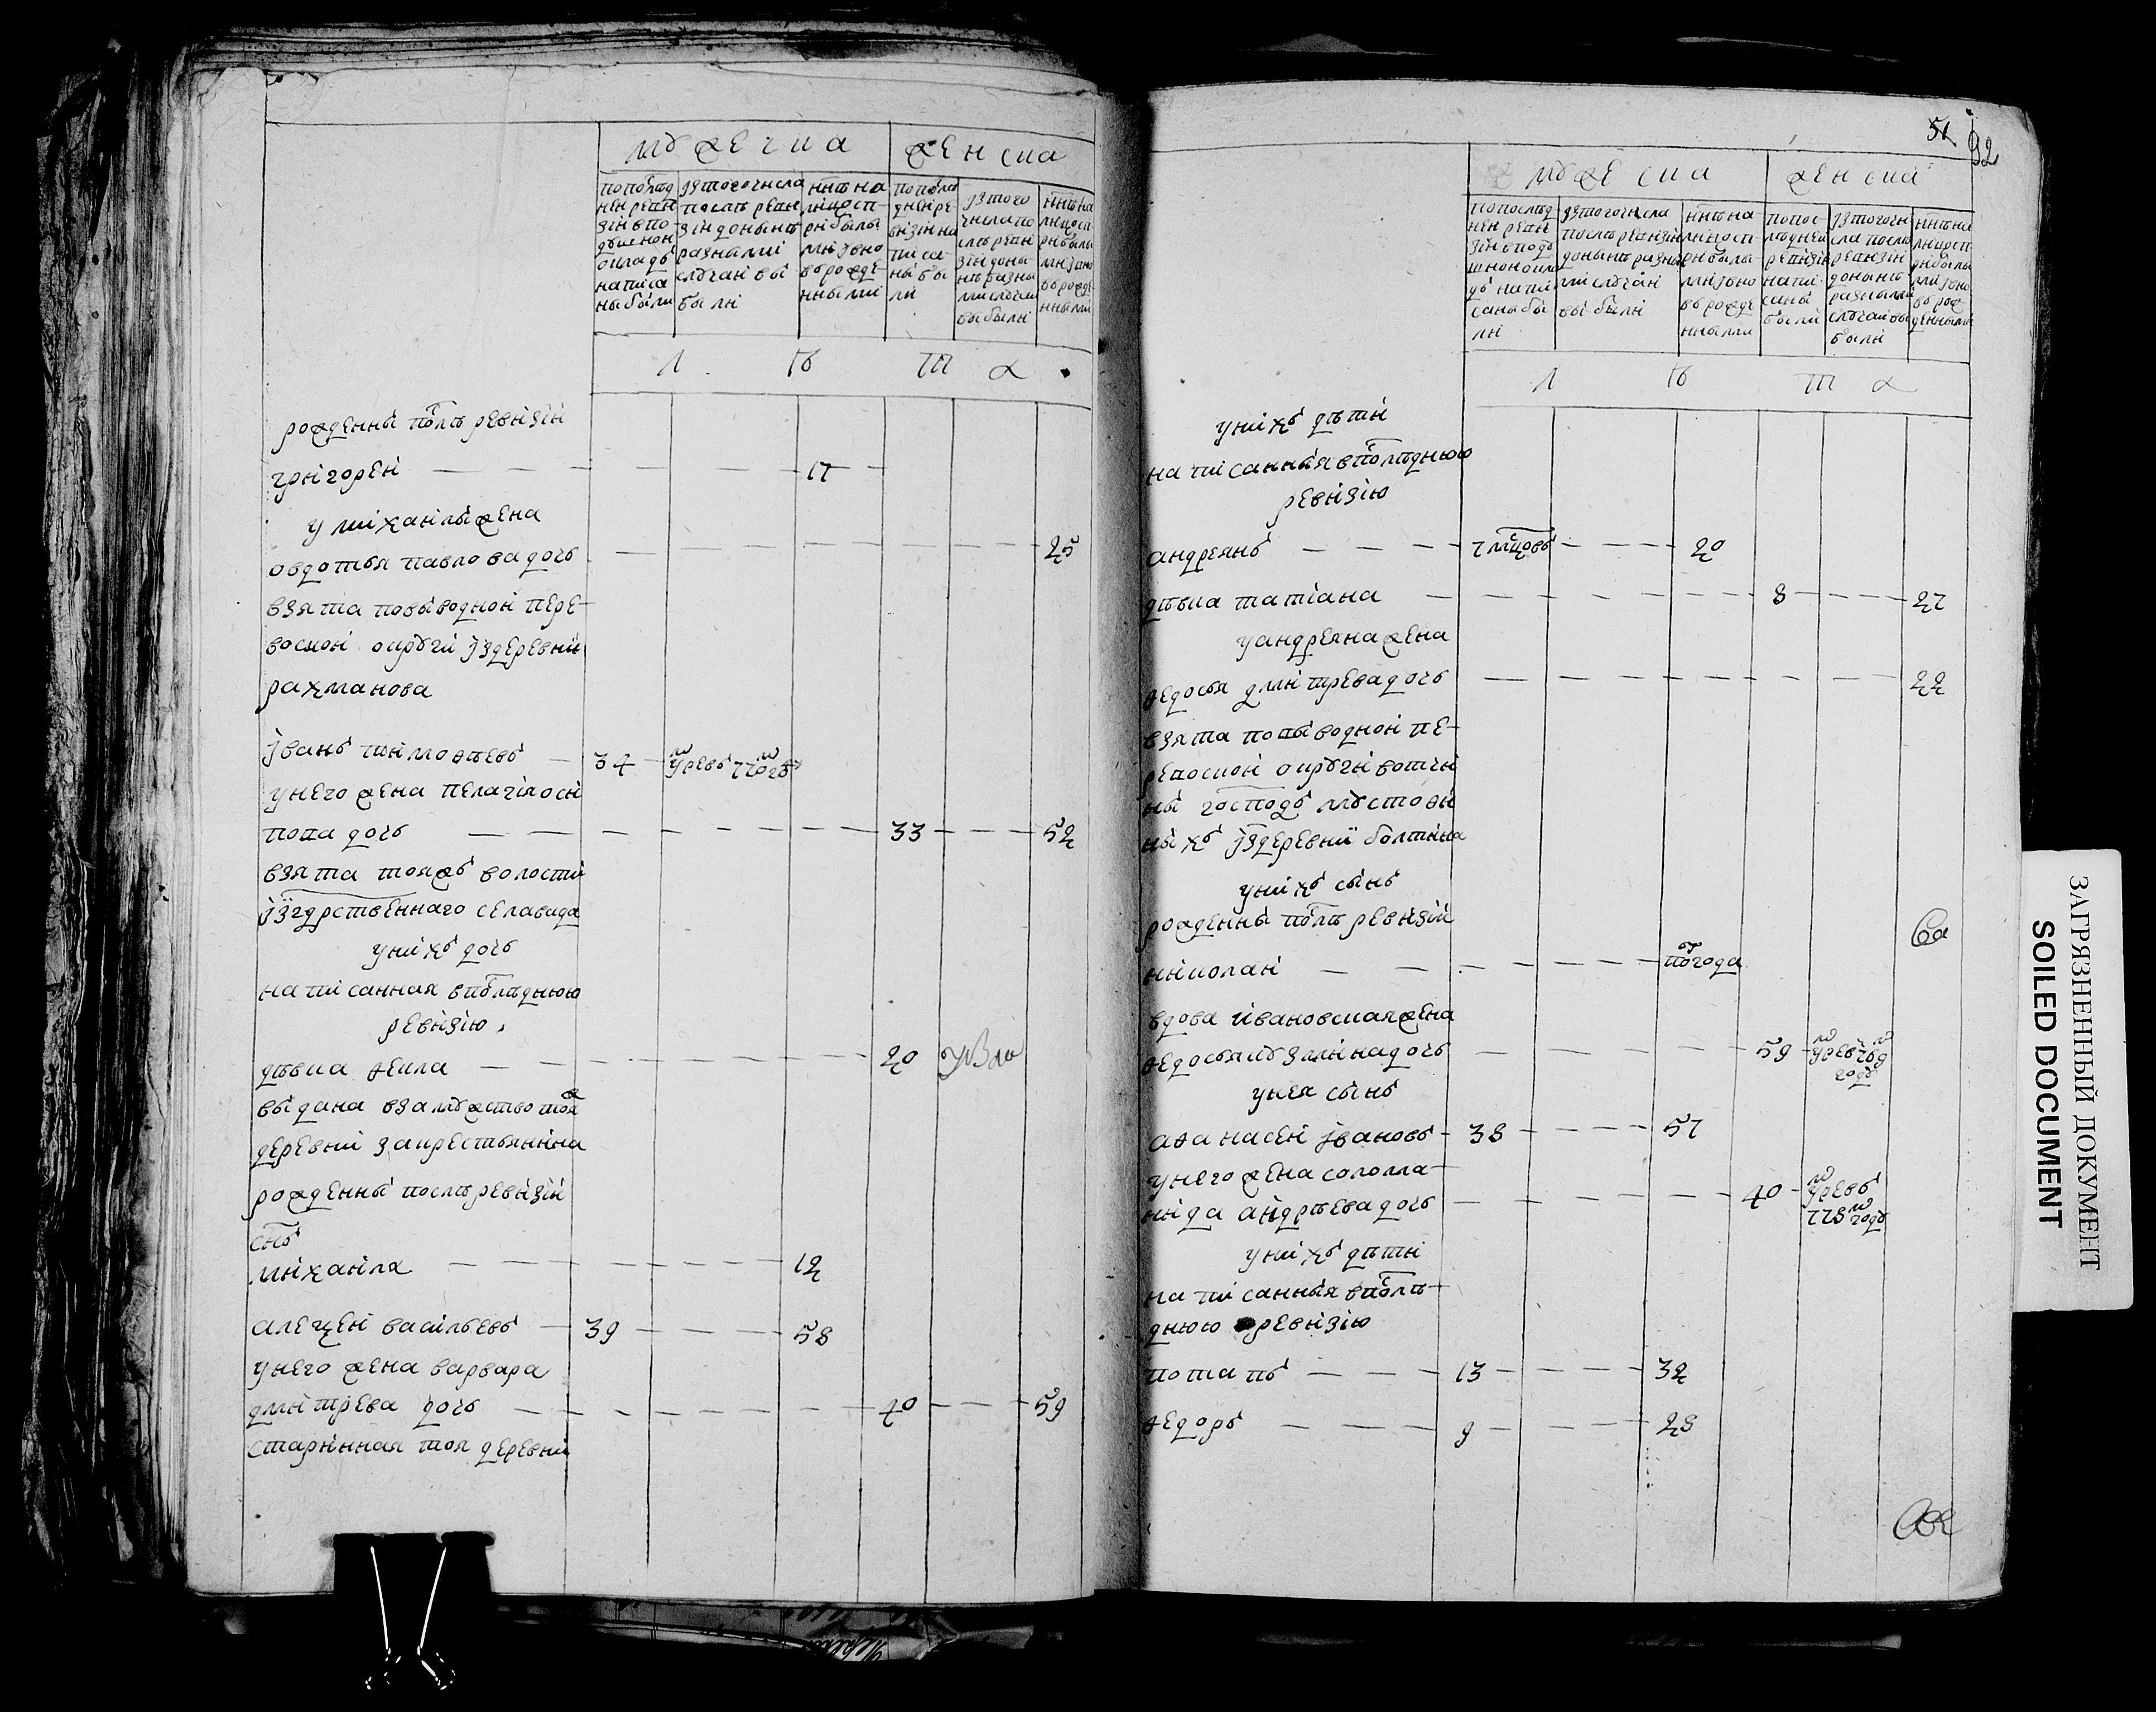 мужеска
женска
попослед
ней реви
зии впо
душной
окладъ
написа
ны были
изтогочисла
после реви
зии доныне
разными
случаи вы
были
ныне на
лицо сп
рибылы
ми i вно
врожде
нными
попосле
дней ре
визии на
писа
ны бы
ли
изтого
числа по
сле реви
зии доны
не разны
ми случаи
выбыли
ныне на
лицо сп
рибылы
ми i вно
врожде
нными
лѣта
рожденный после ревизiи
григорей 17
у михаилы жена
овдотья павлова дочь 25
взята повыводной пере
воской округи iздеревни
рахманова
iванъ тимофеевъ 34 умре въ 77 году
унего жена пелагiя оси
попа дочь 33 52
взята тояжъ волости
iзгдрственнаго села вида
унихъ дочь
написанная впослѣднюю
ревизiю
дѣвка фекла 20
выдана взамужство тоя ж
деревни закрестьянина
рожденный послѣ ревизiи
снъ
михаила 12
алексей васильевъ 39 58
унего жена варвара
дмитрева дочь 40 59
старинная тоя деревни
51
92
мужеска
женска
попослед
ней реви
зии вподу
шной окла
дъ напи
саны бы
ли
изтогочисла
после ревизiи
доныне разны
ми случаи
выбыли
ныне на
лицо сп
рибылы
ми i вно
врожде
нными
попос
ледней
ревизiи
напи
саны
были
изтогочи
сла после
ревизiи
доныне
разными
случаи вы
были
ныне на
лицо сп
рибылы
ми i вно
врож
денными
лѣта
унихъ дѣти
написанныя впослѣднюю
ревизiю
андреянъ 7 мцовъ 20
дѣвка татiана 8 27
у андреяна жена
федосья дмитрева дочь 22
взята повыводной пе
ревоской округи вотчи
ны господъ
ныхъ iздеревни болтина
унихъ сынъ
рожденный послѣ ревизiи
николай пол года
вдова ивановская жена
федосья кузмина дочь 59 умре въ году
унея сынъ
афанасей iвановъ 38 57
унего жена солома
нида андрѣева дочь 40 умре въ 778 году
унихъ дѣти
написанныя впослѣ
днюю ревизiю
потапъ 13 32
федоръ 9 28
ЗАГРЯЗНЕННЫЙ ДОКУМЕНТ
SOILED DOCUMENT